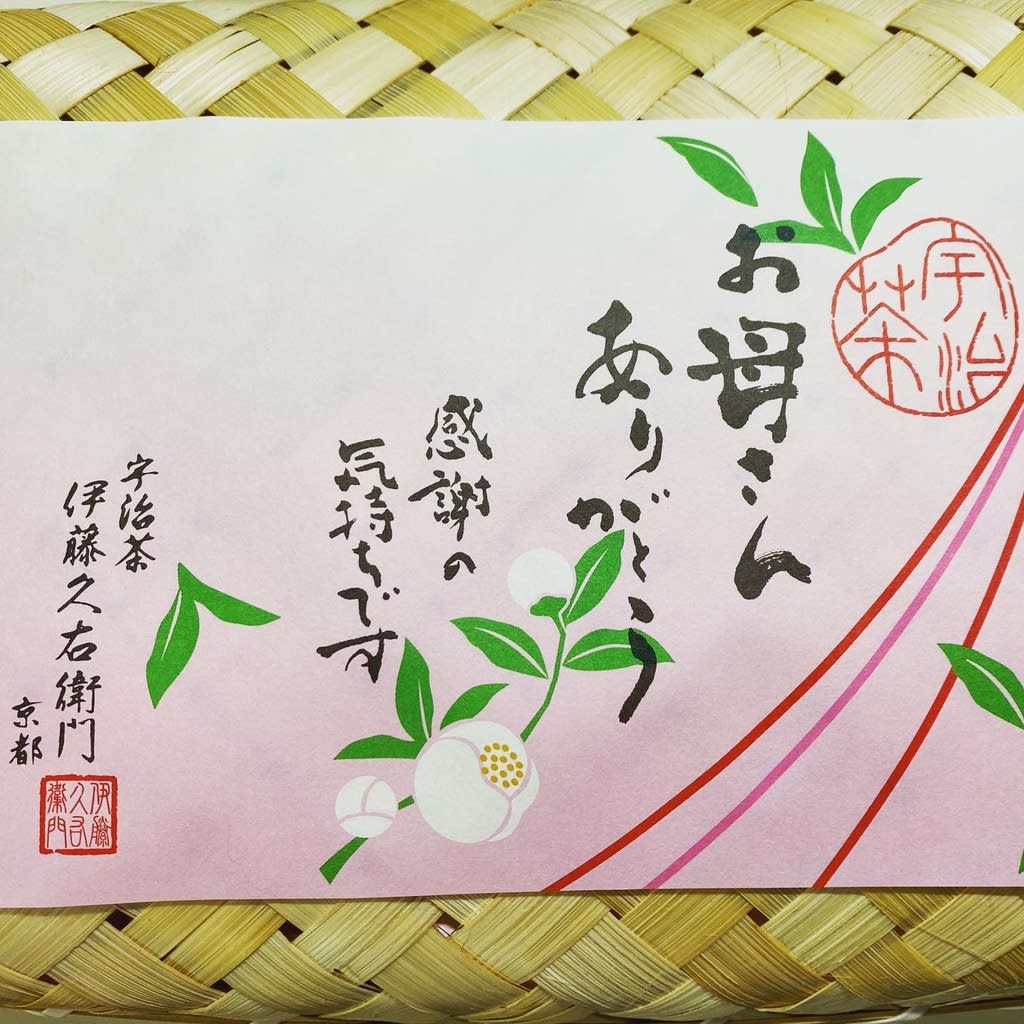 宇治
茶
お母さん
ありがとう
感謝の
気持ちです
宇治茶
伊藤久右衛門
京都
伊藤
久右
衛門